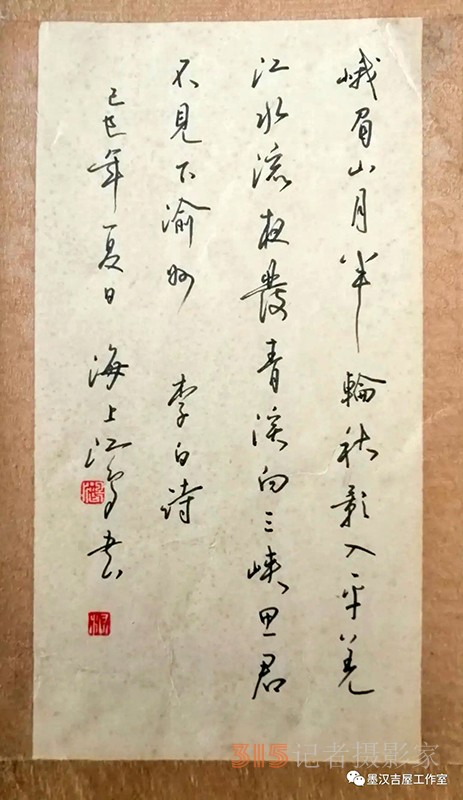 峨眉山月半輪秋影入平羌
江水流夜發青溪向三峽思君
不見下渝州 李白詩
己巳年夏日 海上江鳥書
315记者摄影家
墨汉吉屋工作室